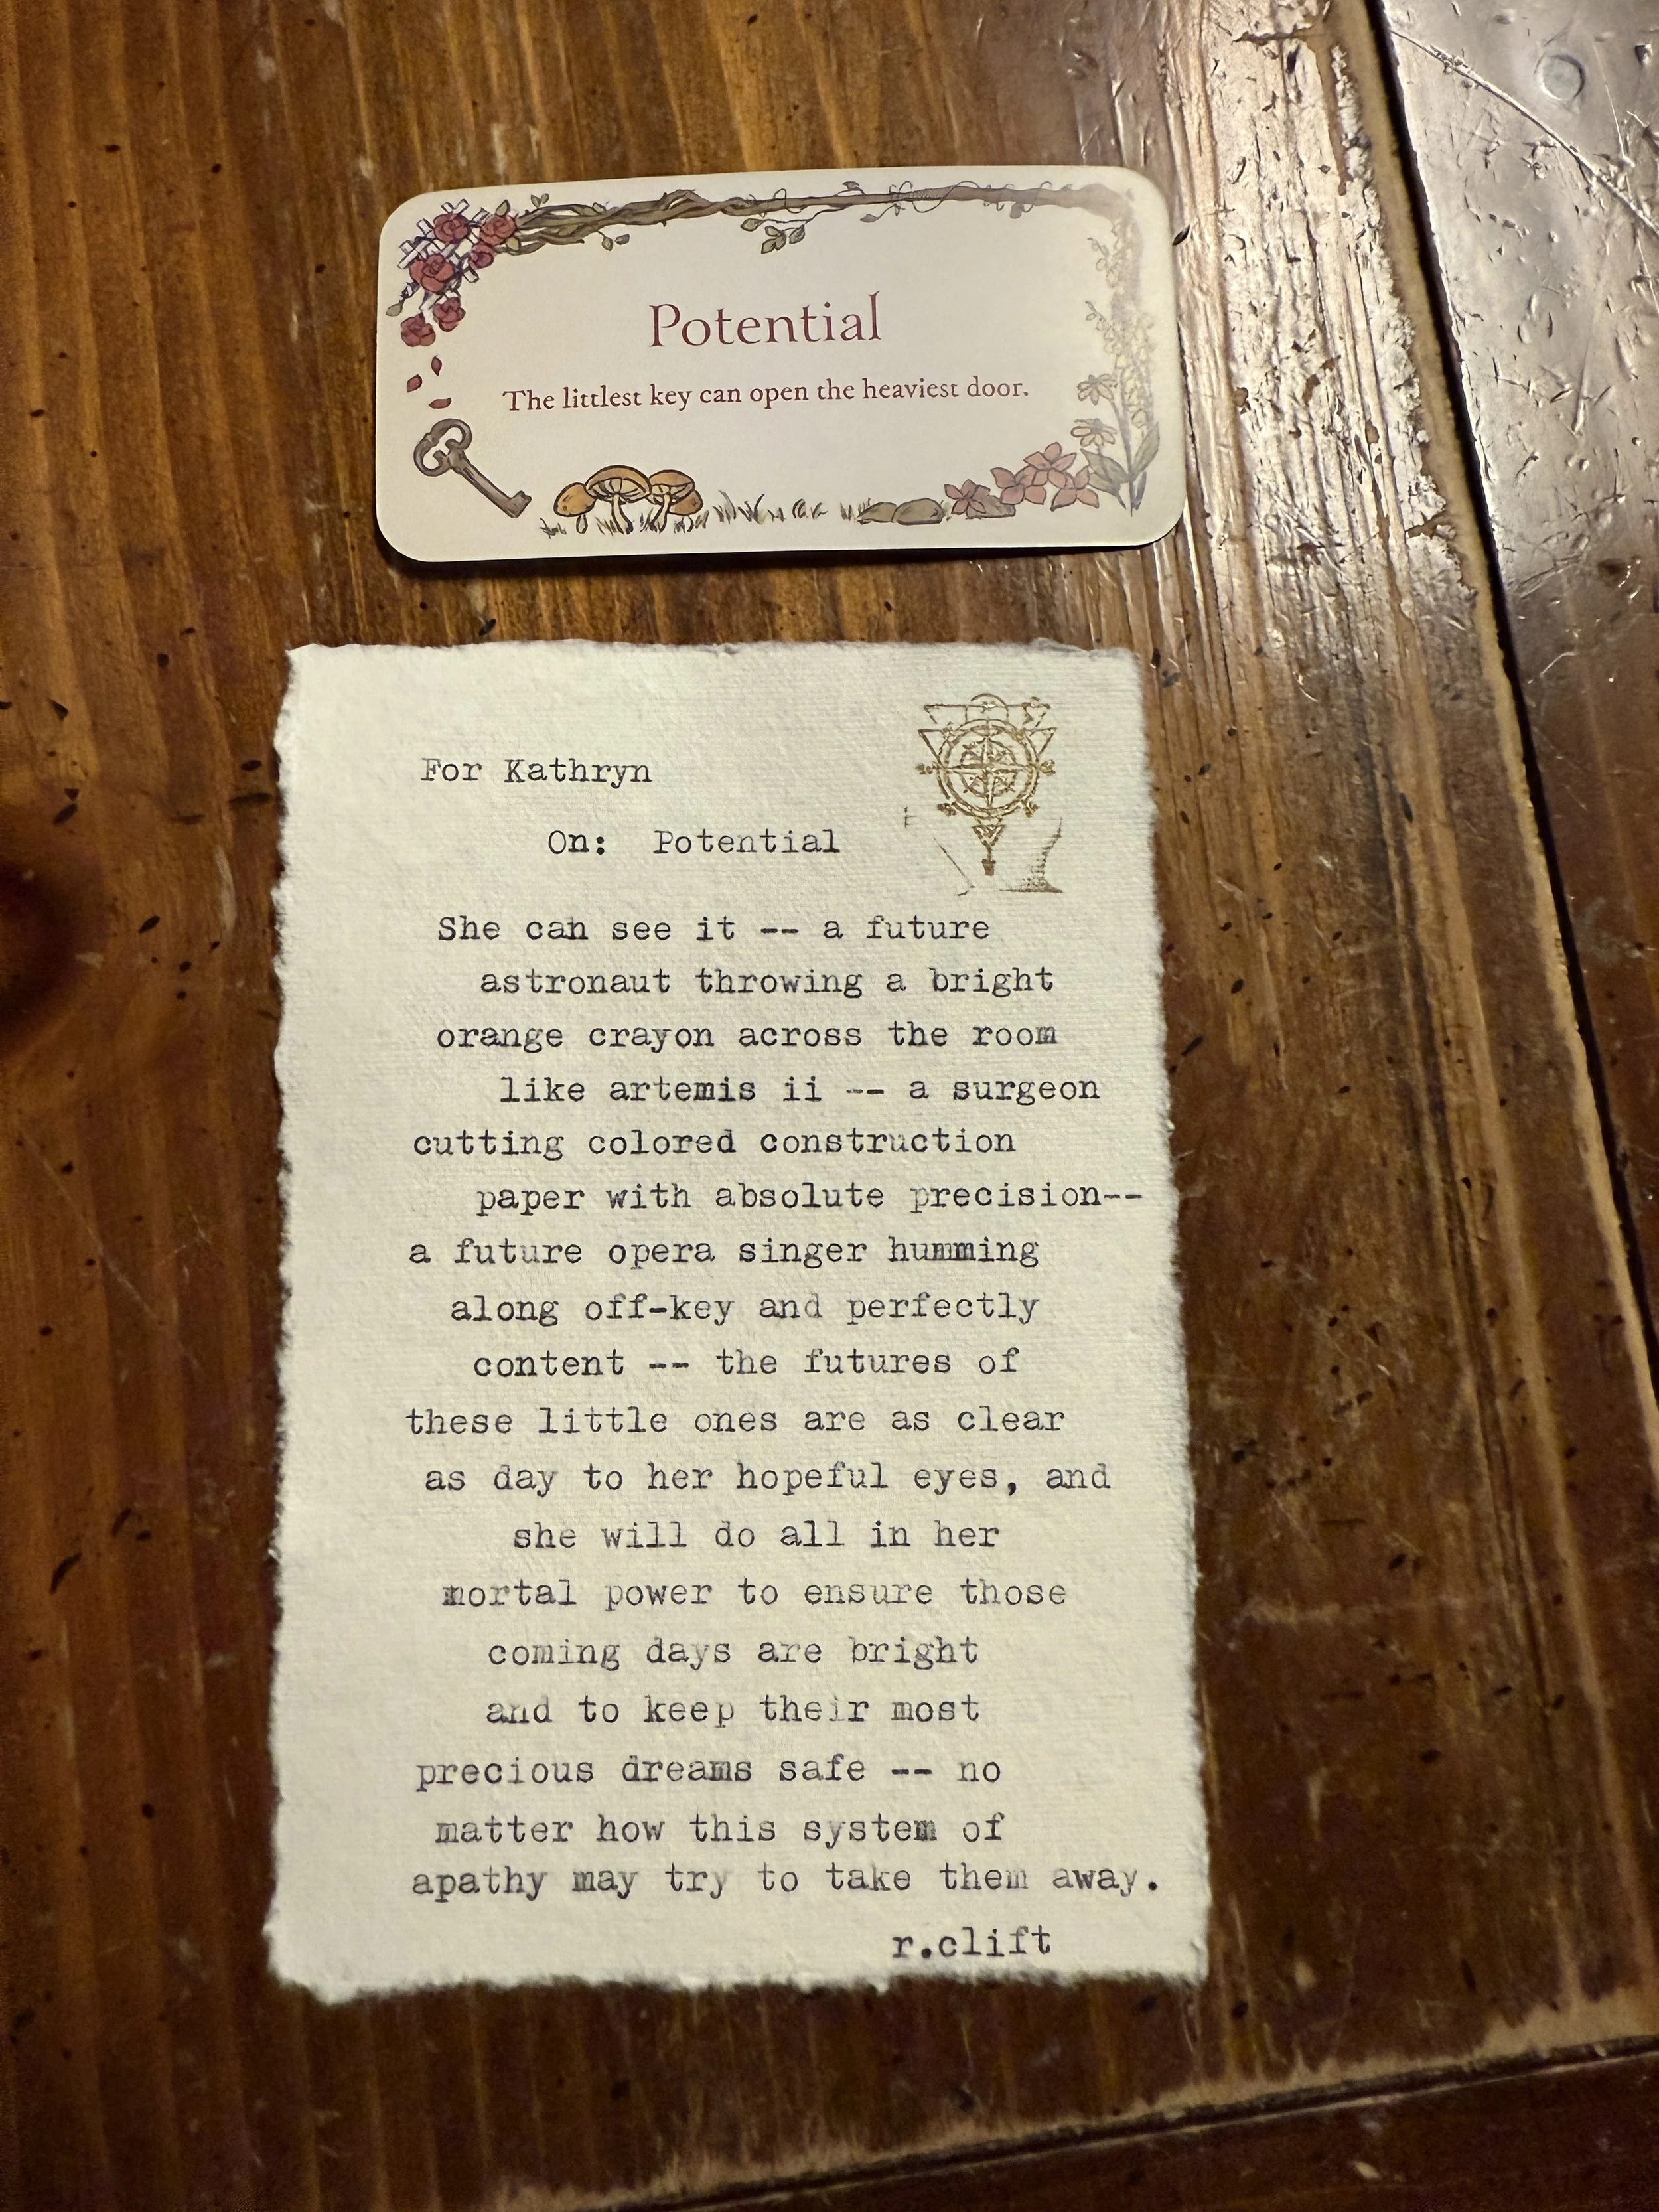 Potential
The littlest key can open the heaviest door.
For Kathryn
On: Potential
She can see it -- a future
astronaut throwing a bright
orange crayon across the room
like artemis ii -- a surgeon
cutting colored construction
paper with absolute precision--
a future opera singer humming
along off-key and perfectly
content -- the futures of
these little ones are as clear
as day to her hopeful eyes, and
she will do all in her
mortal power to ensure those
coming days are bright
and to keep their most
precious dreams safe -- no
matter how this system of
apathy may try to take them away.
r.clift